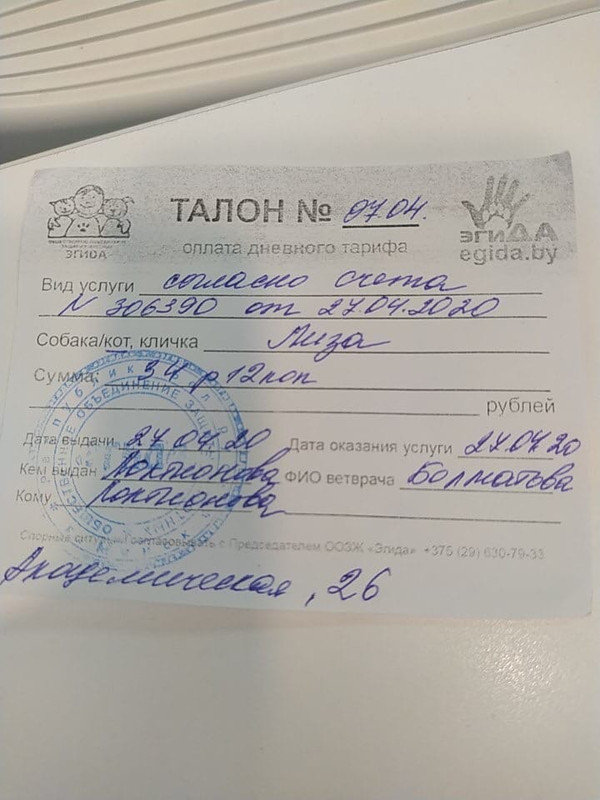 ТАЛОН № 97.04.
ЭГИДА
ЭГИДА
egida.by
оплата дневного тарифа
Вид услуги согласно счета
N 306390 от 27.04.2020
Собака/кот, кличка Лиза
Сумма: 34 р 12 коп
рублей
Дата выдачи 27.04.20 Дата оказания услуги 27.04.20
Кем выдан Локтионова ФИО ветврача Болматова
Кому Локтионова
Спорные ситуации согласовывать с Председателем ООЗЖ «Эгида» +375 (29) 630-79-33
Академическая, 26
ОБЩЕСТВЕННОЕ ОБЪЕДИНЕНИЕ ЗАЩИТЫ